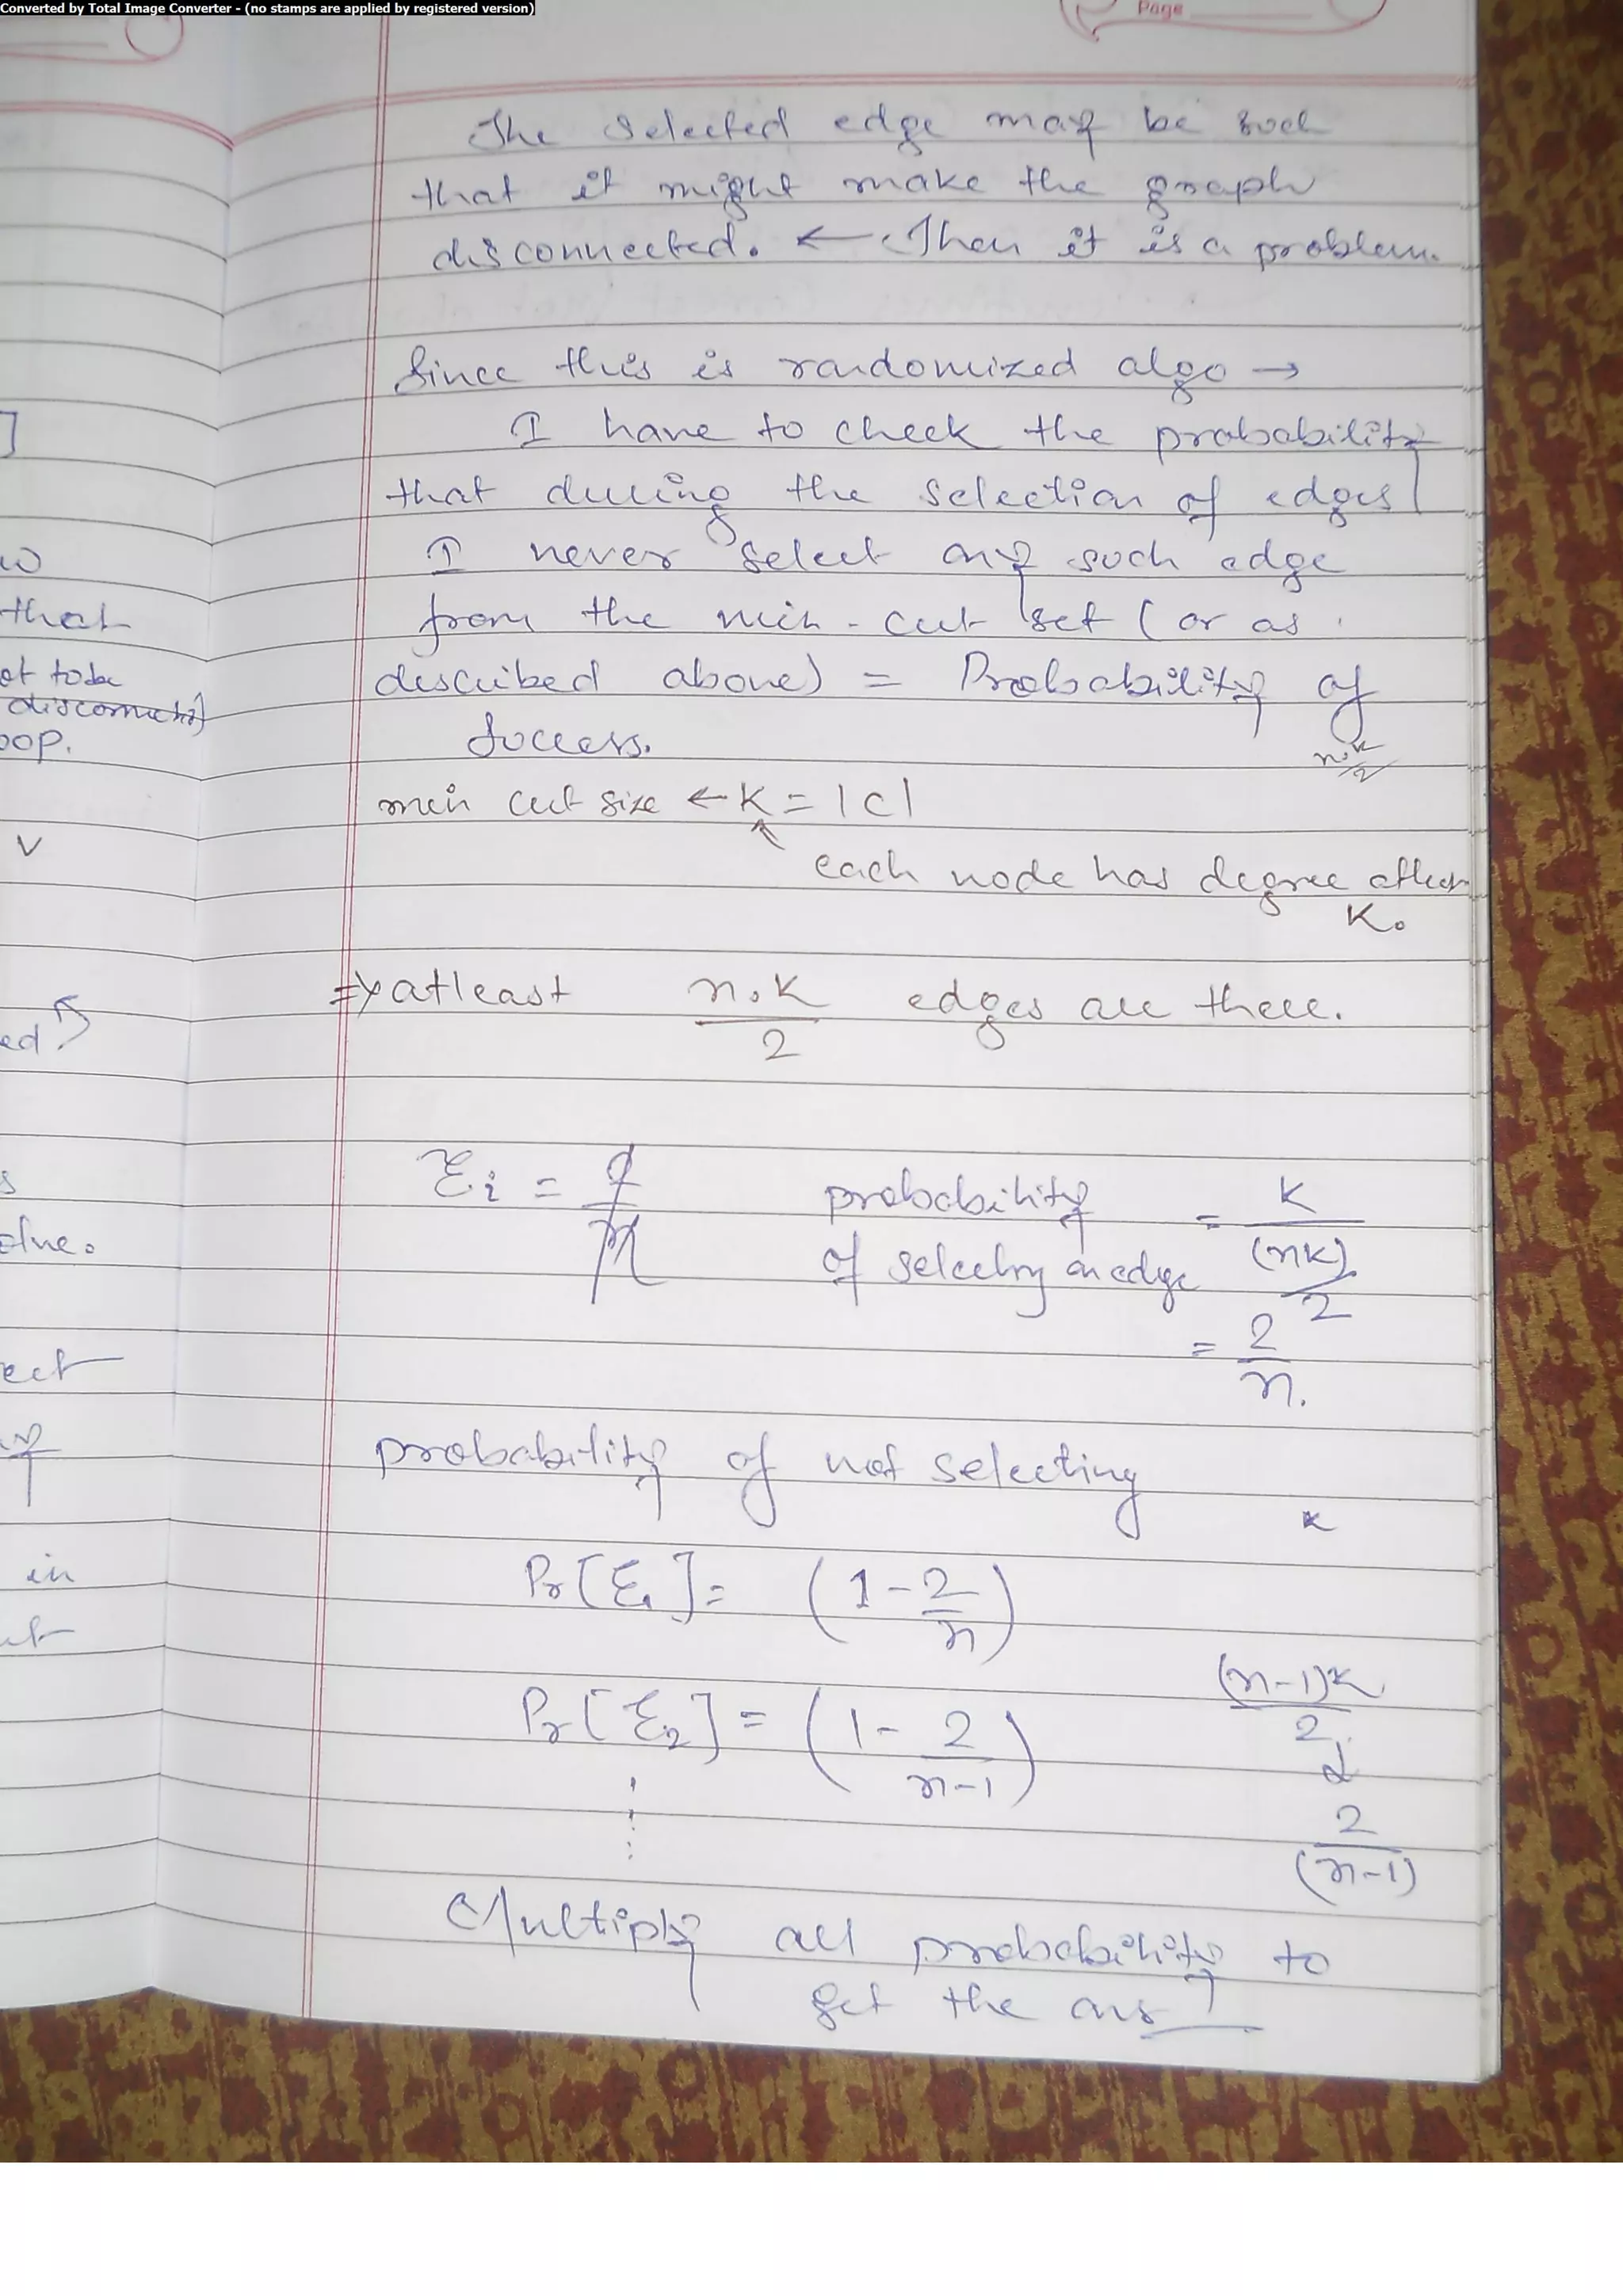 Converted by Total Image Converter - (no stamps are applied by registered version)
Page
The selected edge may be such
that it might make the graph
disconnected. ← Then it is a problem.
Since this is randomized algo →
I have to check the probability
that during the selection of edges
I never select any such edge
from the min-cut set (or as
described above) = Probability of
Success.
n.k/2
min cut size ← K = |C|
each node has degree atleast
K.
⇒ atleast n.K/2 edges are there.
Ɛi =
probability of selecting an edge = K/((nK)/2)
= 2/n.
probability of not selecting
K
Pr[Ɛ1] = (1 - 2/n)
(n-1)K/2
Pr[Ɛ2] = (1 - 2/(n-1))
↓
2/(n-1)
Multiply all probability to
get the ans
]
w
that
et to be
disconnected
oop.
v
ed
s
alue.
ect
in